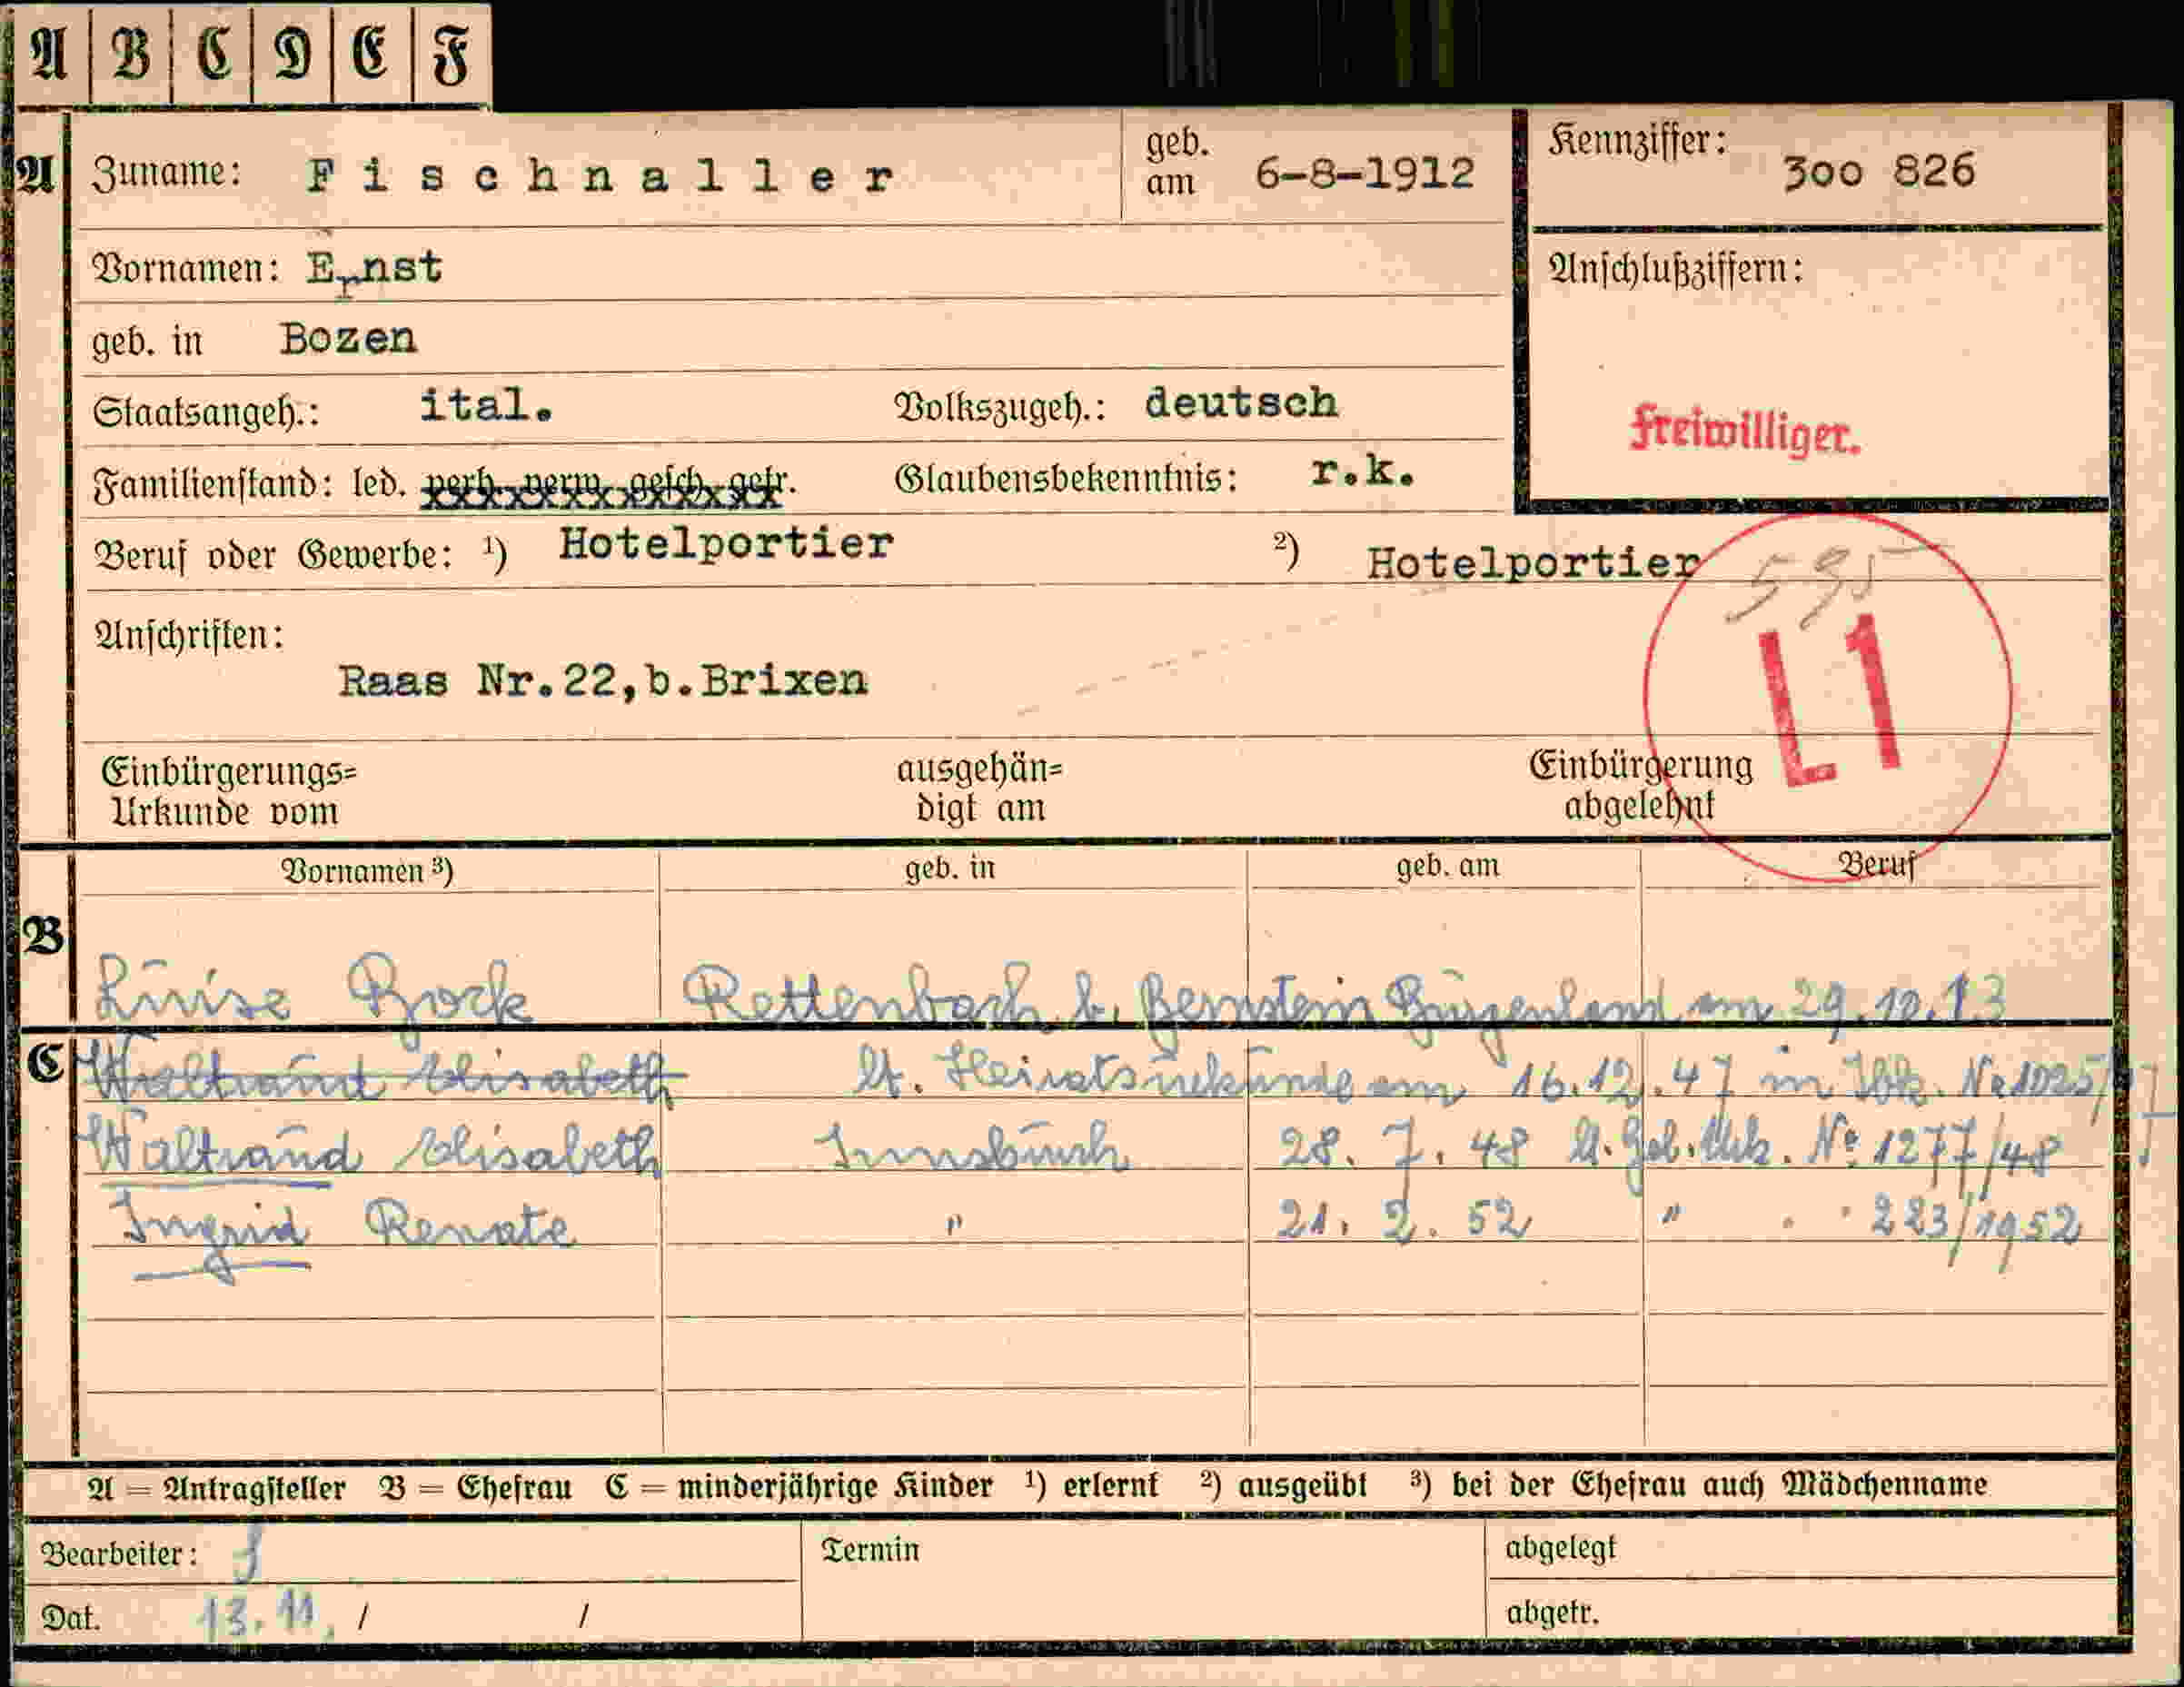 A B C D E F
A Zuname: Fischnaller geb. am 6-8-1912 Kennziffer: 300 826
Vornamen: Ernst Anschlußziffern:
geb. in Bozen
Staatsangeh.: ital. Volkszugeh.: deutsch Freiwilliger.
Familienstand: led. verh. verw. gesch. getr. Glaubensbekenntnis: r.k.
Beruf oder Gewerbe: ¹) Hotelportier ²) Hotelportier
595
Anschriften: L1
Raas Nr.22,b.Brixen
Einbürgerungs= ausgehän= Einbürgerung
Urkunde vom digt am abgelehnt
Vornamen ³) geb. in geb. am Beruf
B
Luise Bock Rettenbach b. Bernstein Burgenland am 29.10.13
C Waltraud Elisabeth lt. Heiratsurkunde am 16.12.47 in Ibk. Nr 1025/47
Waltraud Elisabeth Innsbruck 28. 7. 48 lt. Geb. Urk. Nº 1277/48
Ingrid Renate " 21. 2. 52 " 223/1952
A = Antragsteller B = Ehefrau C = minderjährige Kinder ¹) erlernt ²) ausgeübt ³) bei der Ehefrau auch Mädchenname
Bearbeiter: Termin abgelegt
Dat. 13.11. / / abgetr.